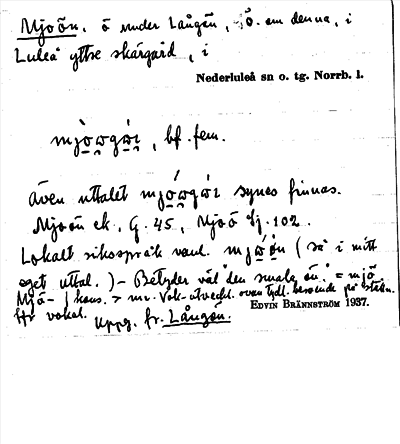 Mjoön. ö under Lången, S.Ö. om denna, i
Luleå yttre skärgård, i
Nederluleå sn o. tg. Norrb. l.
, bf. fem.
Även uttalet synes finnas.
Mjoön ek. G. 45, Mjoö Sj. 102.
Lokalt riksspråk vanl. (så i mitt
eget uttal.) – Betyder väl "den smala ön". = mjö
Mjö- kons. > Vok.-utveckl. ovan tydl. beroende på ställn.
ffr vokal. Uppg. fr. Lången.
EDVIN BRÄNNSTRÖM 1937.